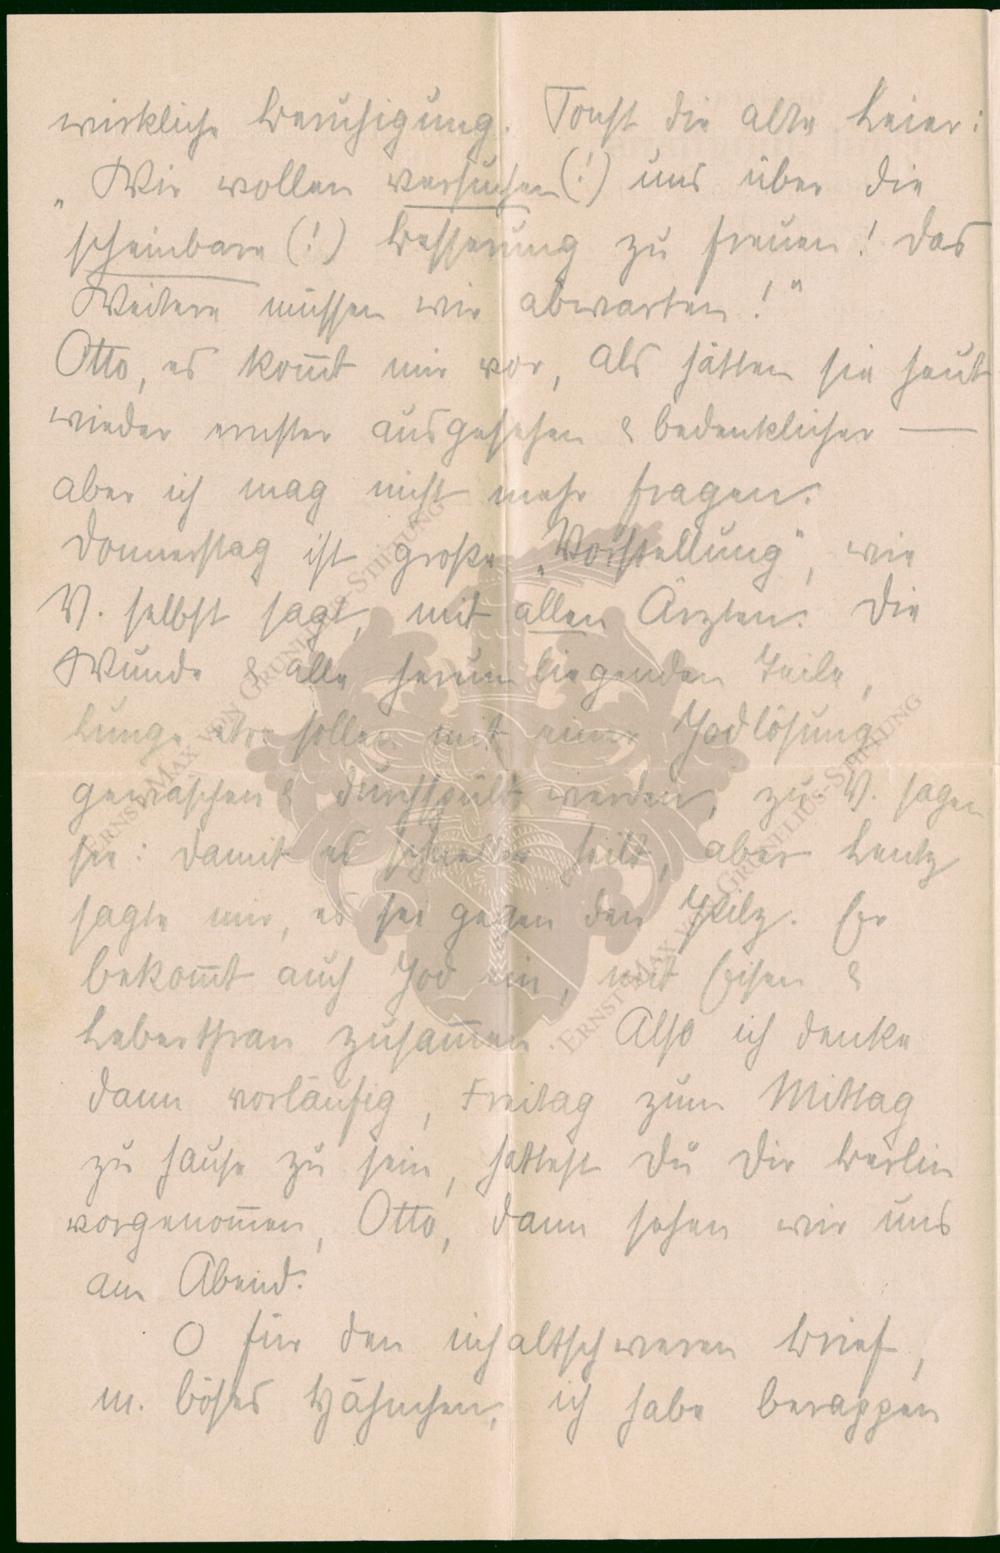 wirkliche Beruhigung. Sonst die alte Leier:
„Wir wollen versuchen (!) uns über die
scheinbare (!) Besserung zu freuen! Das
Weitere müssen wir abwarten!"
Otto, es kom̅t mir vor, als hätten sie heut
wieder ernster ausgesehen & bedenklicher —
aber ich mag nicht mehr fragen.
Donnerstag ist große „Vorstellung", wie
V. selbst sagt, mit allen Ärzten. Die
Wunde & alle herumliegenden Teile,
Lunge etc sollen mit einer Jodlösung
gewaschen & durchspült werden, zu V. sagen
sie: damit es schneller heilt, aber Lentz
sagte mir, es sei gegen den Pilz. Er
bekom̅t auch Jod ein, mit Eisen &
Leberthran zusam̅en. Also ich denke
dann vorläufig, Freitag zum Mittag
zu Hause zu sein, hättest Du Dir Berlin
vorgenom̅en, Otto, dann sehen wir uns
am Abend.
O für den inhaltschweren Brief,
m. böses Hähnchen, ich habe berappen
ERNST MAX VON GRUNELIUS-STIFTUNG
ERNST MAX VON GRUNELIUS-STIFTUNG